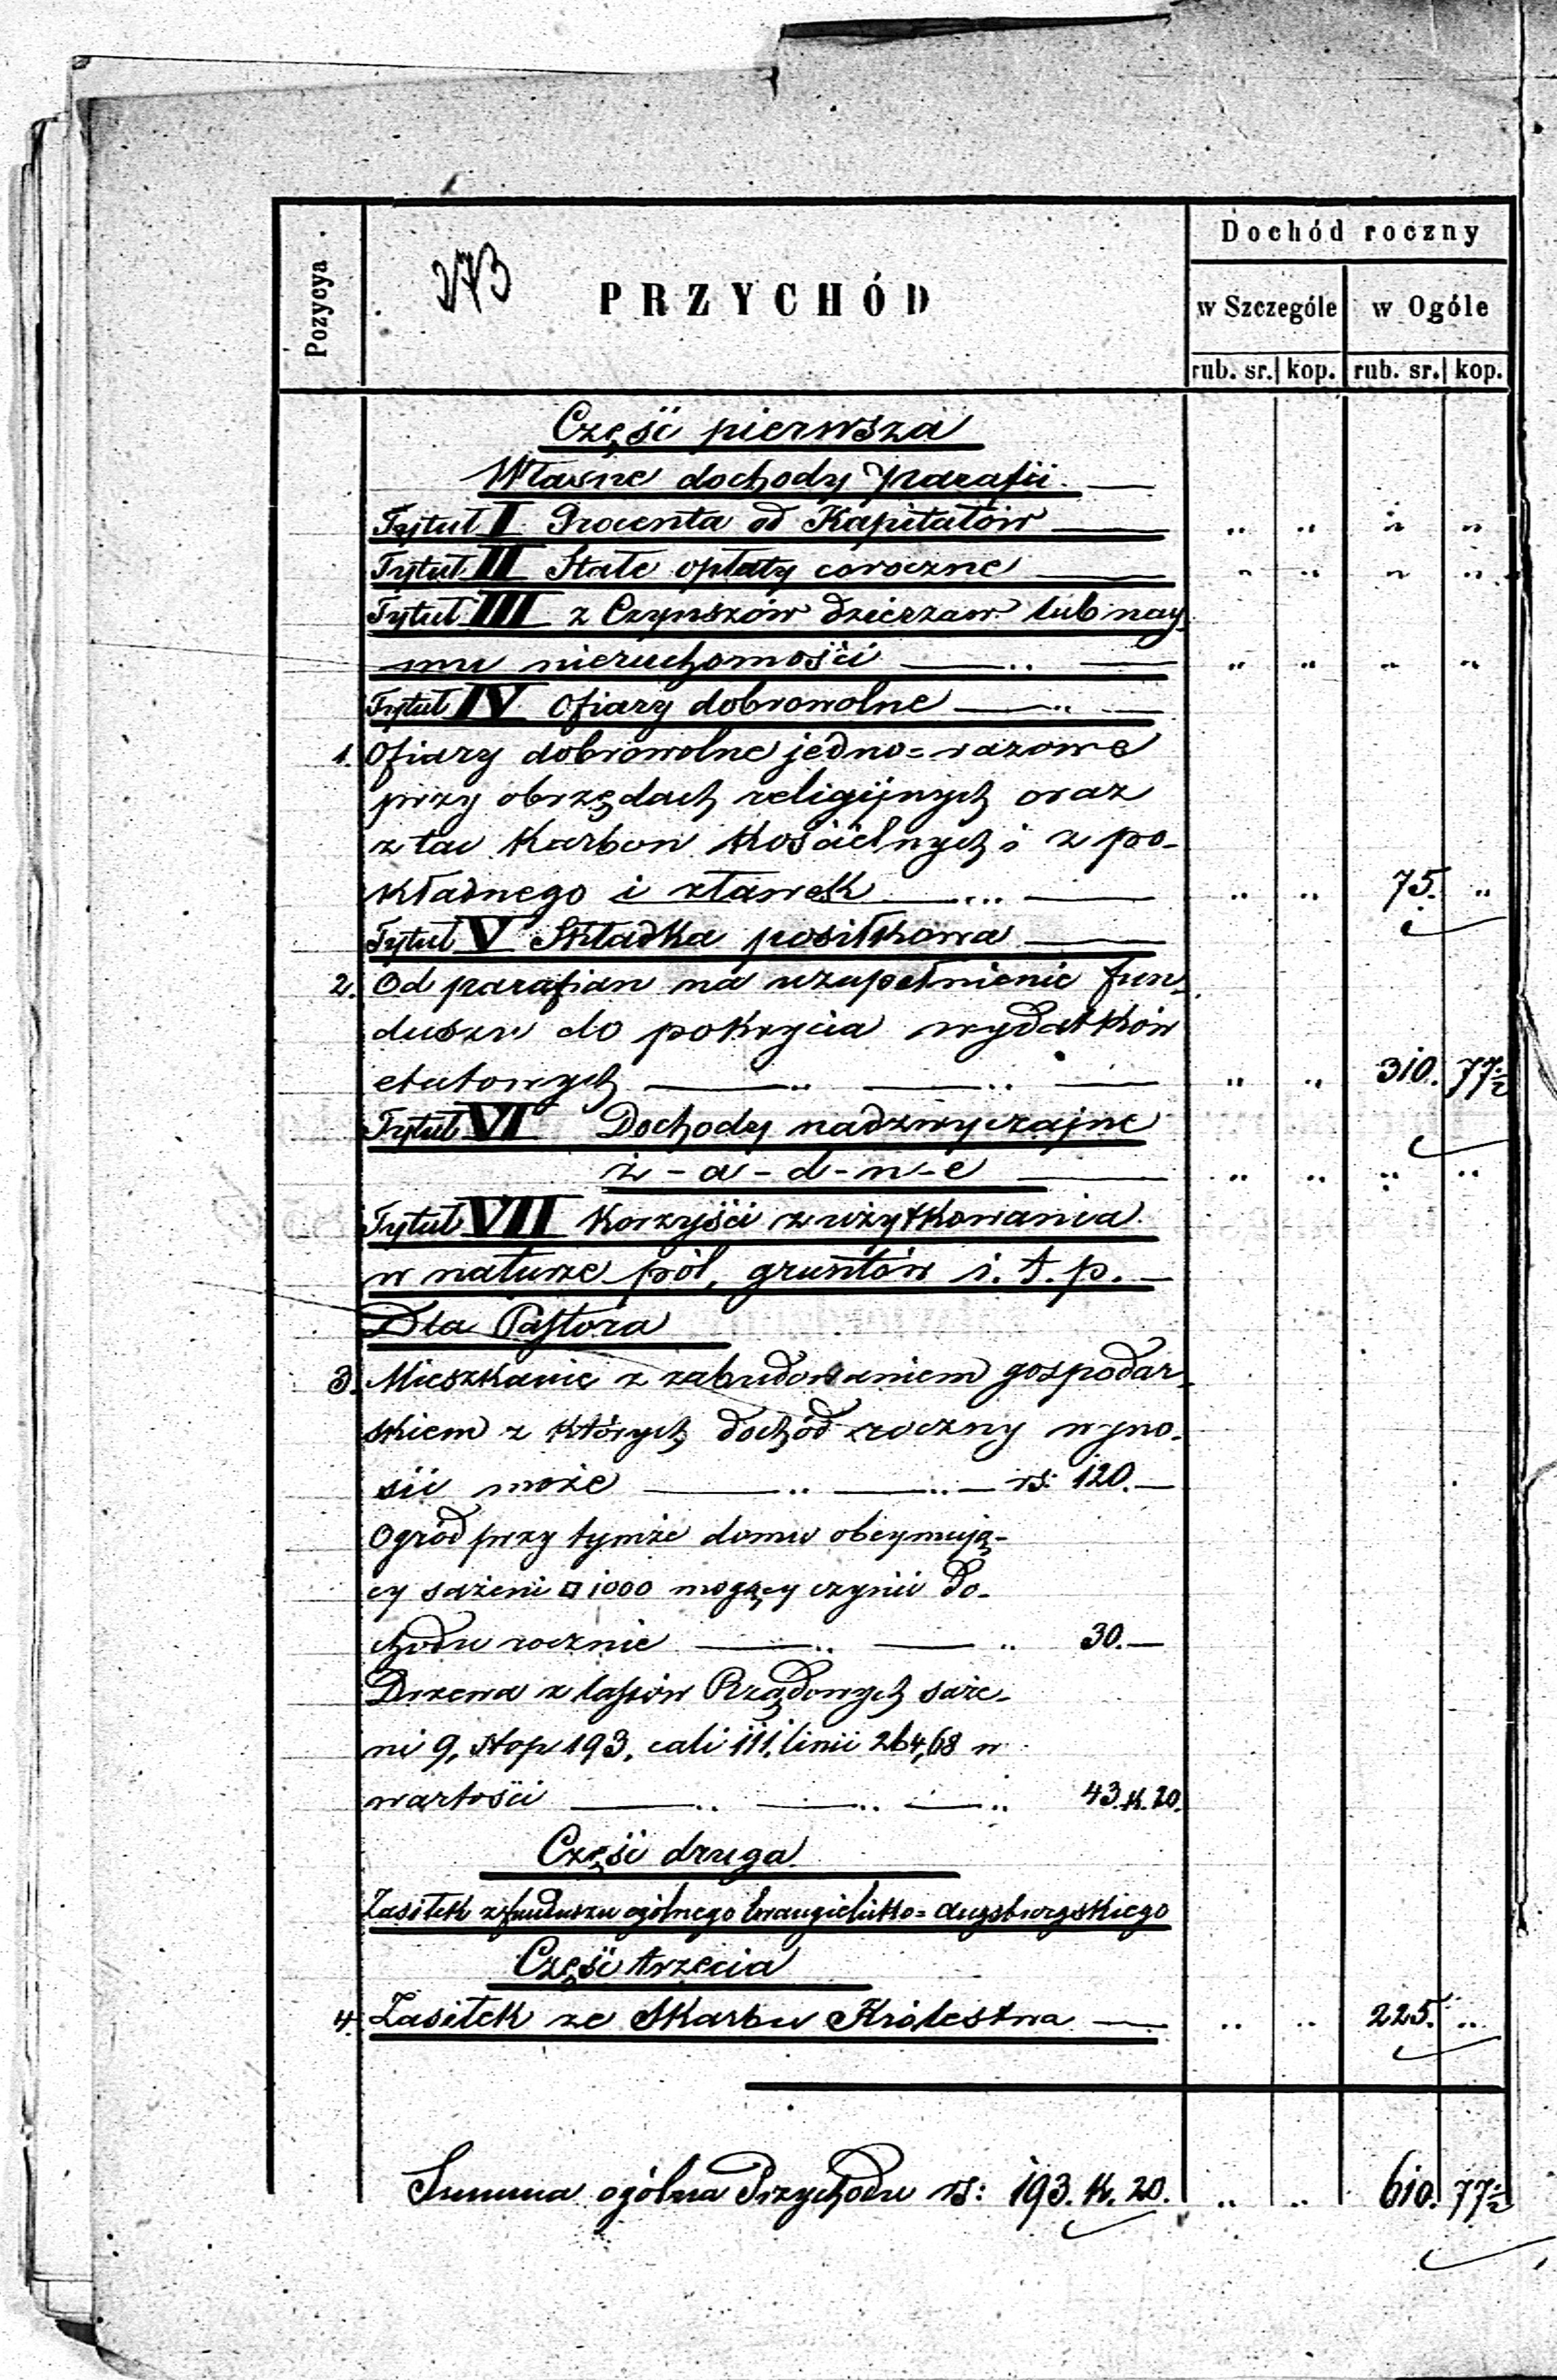 Pozycya
273
PRZYCHÓD
Dochód roczny
w Szczególe w Ogóle
rub. sr. kop. rub. sr. kop.
Część pierwsza
Własne dochody Parafii
Tytuł I Procenta od Kapitałów „ „ „ „
Tytuł II Stałe opłaty coroczne „ „ „ „
Tytuł III z Czynszów dzierzaw lub nay-
mu nieruchomości „ „ „ „
Tytuł IV Ofiary dobrowolne
1. Ofiary dobrowolne jedno=razowe
przy obrzędach religijnych oraz
z tac Karbon Kościelnych i z po-
kładnego i z ławek „ „ 75. „
Tytuł V Składka posiłkowa
2. Od parafian na uzupełnienie fun-
duszu do pokrycia wydatków
etatowych „ „ 310. 77½
Tytuł VI Dochody nadzwyczajne
ż-a-d-n-e „ „ „ „
Tytuł VII Korzyści z użytkowania
w naturze pól, gruntów i. t. p.
Dla Pastora
3. Mieszkanie z zabudowaniem gospodar-
skiem z których dochód roczny wyno-
sić może rs: 120.—
Ogród przy tymże domu obeymują-
cy sażeni □ 1000 mogący czynić do-
chodu rocznie 30.—
Drzewa z lasów Rządowych saże-
ni 9, stop 193, cali 111, linii 264,68 w
wartości 43. k. 20.
Część druga
Zasiłek z funduszu ogólnego Ewangielicko=Augsburgskiego
Część trzecia
4. Zasiłek ze Skarbu Królestwa „ „ 225. „
Summa ogólna Przychodu rs: 193. k. 20. „ „ 610. 77½